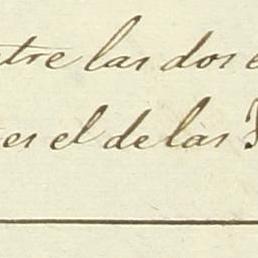 tre las dos
es el de las